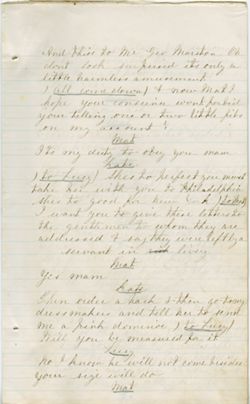 And this to Mr Geo Marston Oh
dont look surprised its only a
little harmless amusement
(all come down) & now Mat I
hope your conscience wont forbid
your telling one or two little fibs
on my account?
Mat
Its my duty to obey you mam
Kate
(to Lucy) Shes to perfect you must
take her with you to Philadelphia
shes to good for New York (to Mat)
I want you to give these letters to
the gentlemen to whom they are
addressed & say they were left by a
servant in livery
Mat
Yes mam
Kate
Then order a hack & then go to my
dressmakers and tell her to send
me a pink domino (to Lucy)
Will you be measured for it
Lucy
No I know he will not come besides
your size will do
Mat